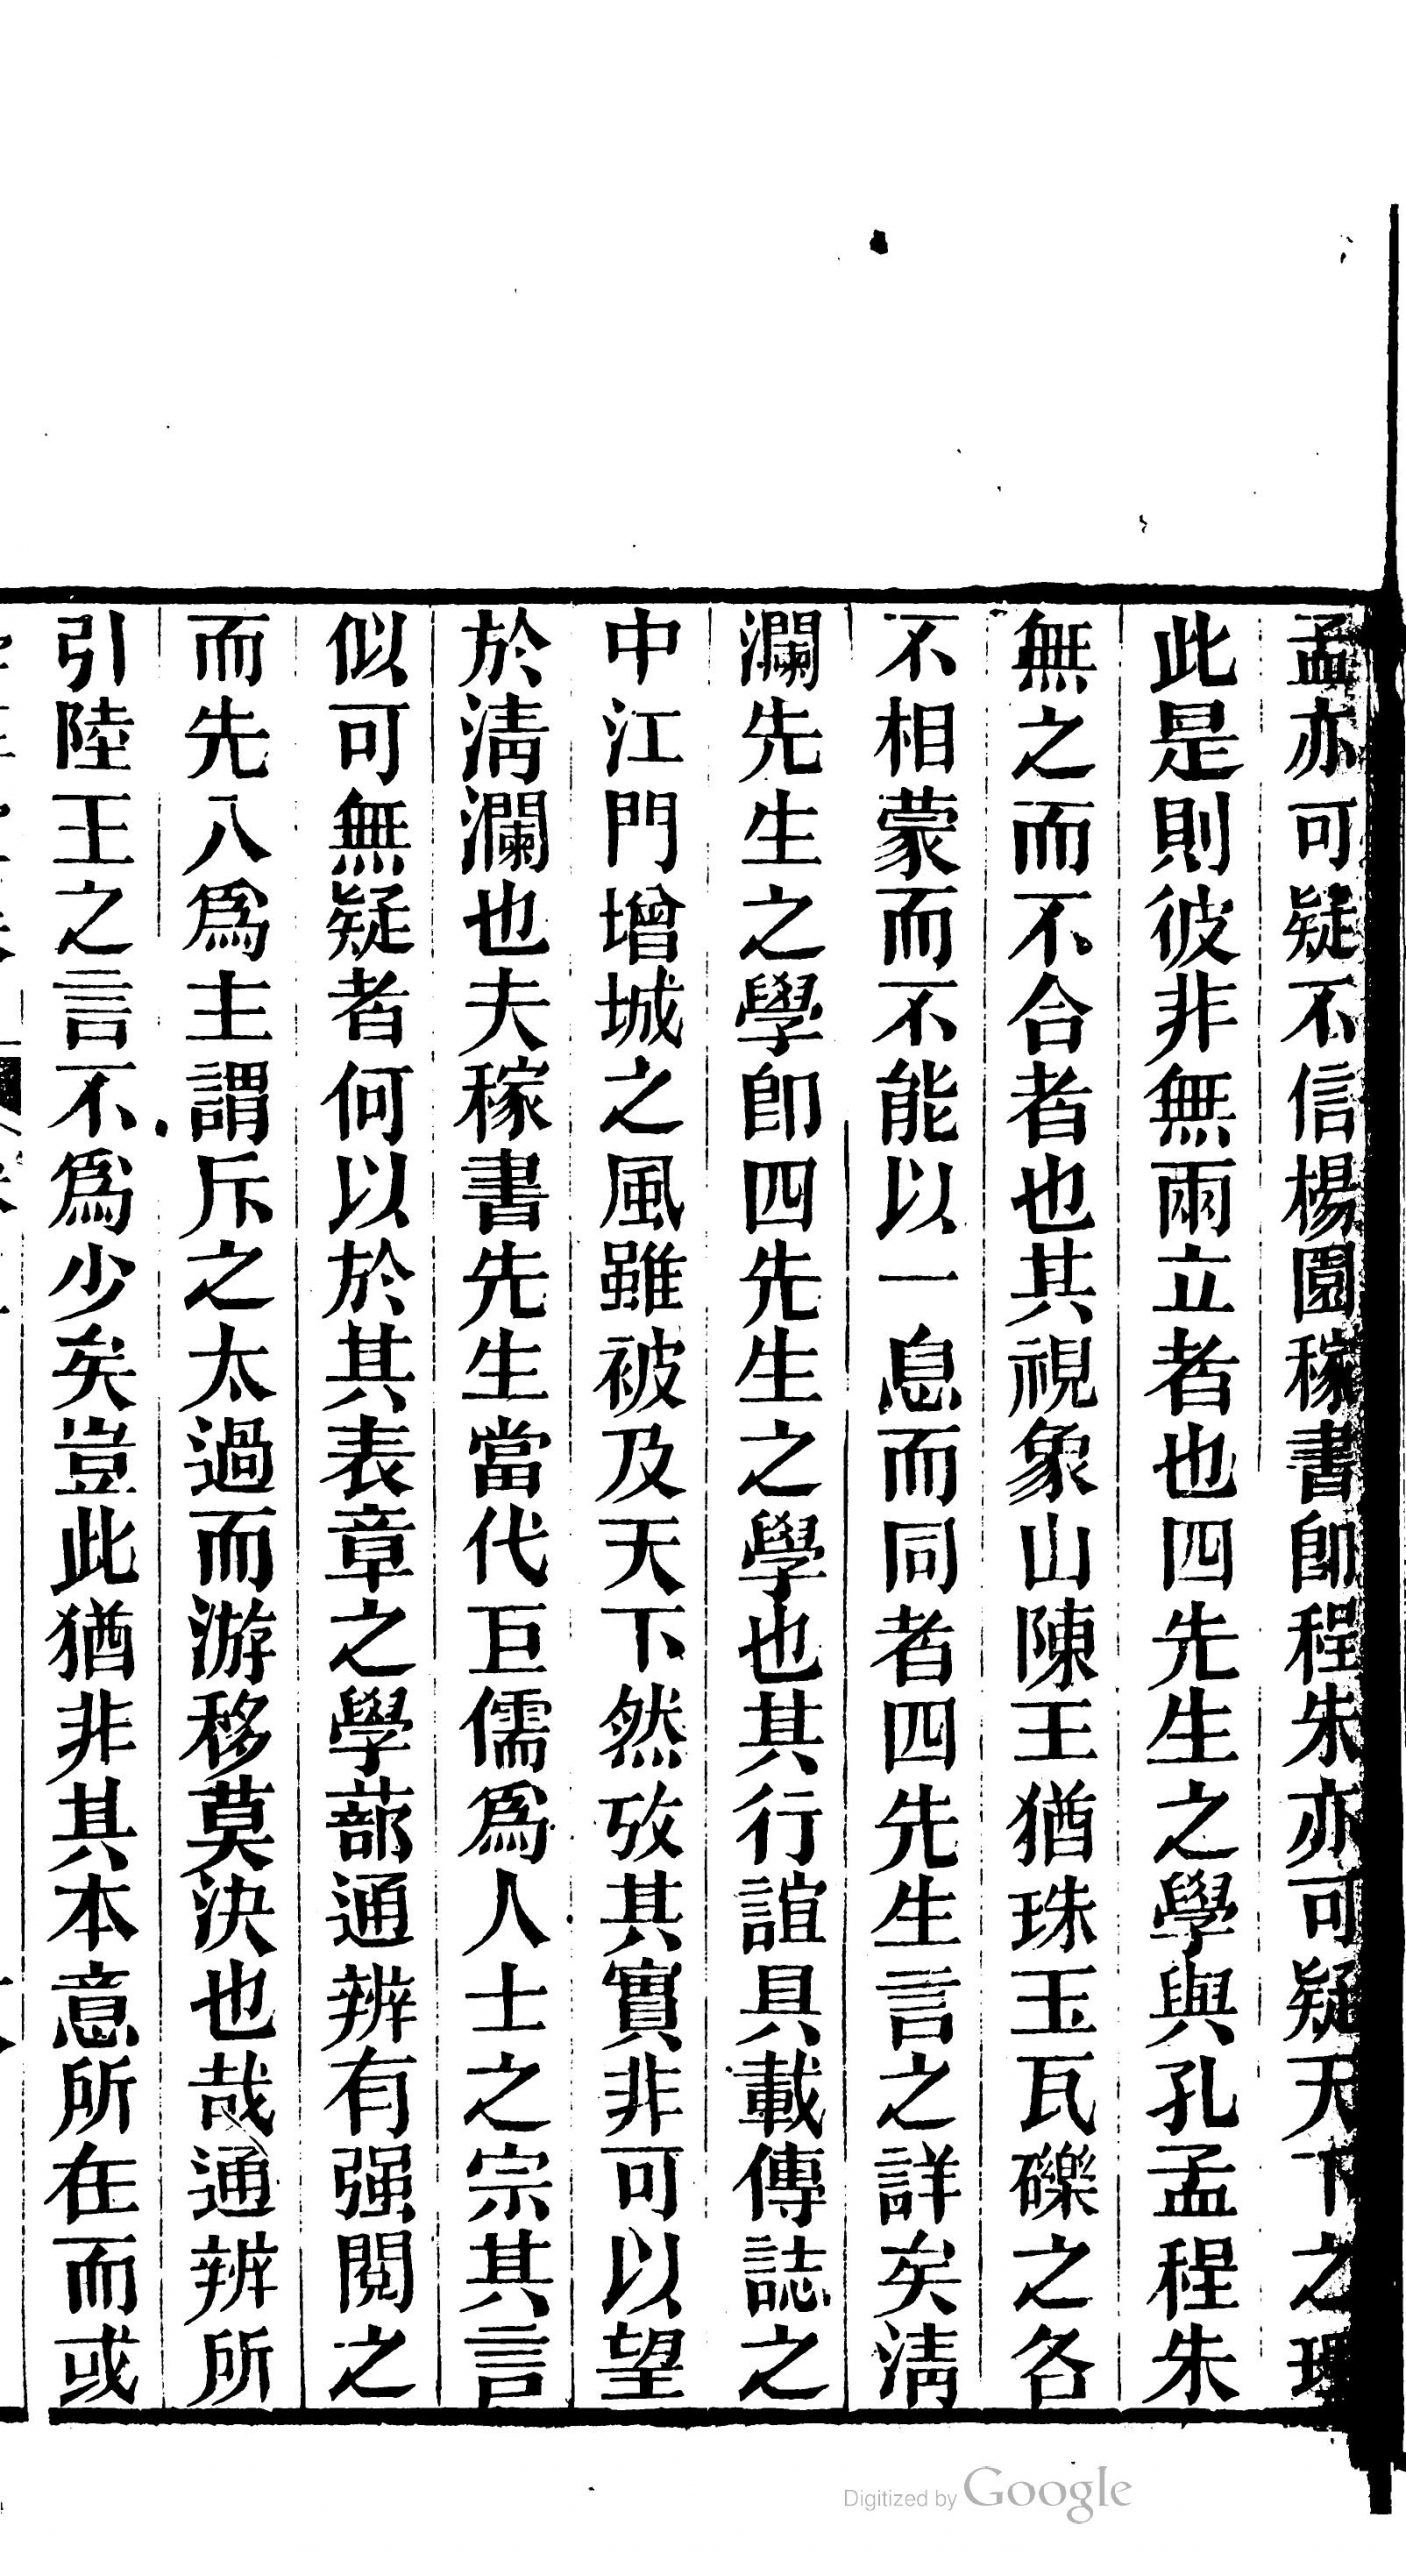 孟亦可疑不信楊園稼書卽程朱亦可疑天下之理
此是則彼非無兩立者也四先生之學與孔孟程朱
無之而不合者也其視象山陳王猶珠玉瓦礫之各
不相蒙而不能以一息而同者四先生言之詳矣淸
瀾先生之學卽四先生之學也其行誼具載傳誌之
中江門增城之風雖被及天下然攷其實非可以望
於淸瀾也夫稼書先生當代巨儒爲人士之宗其言
似可無疑者何以於其表章之學蔀通辨有强閱之
而先入爲主謂斥之太過而游移莫決也哉通辨所
引陸王之言不爲少矣豈此猶非其本意所在而或
Digitized by Google